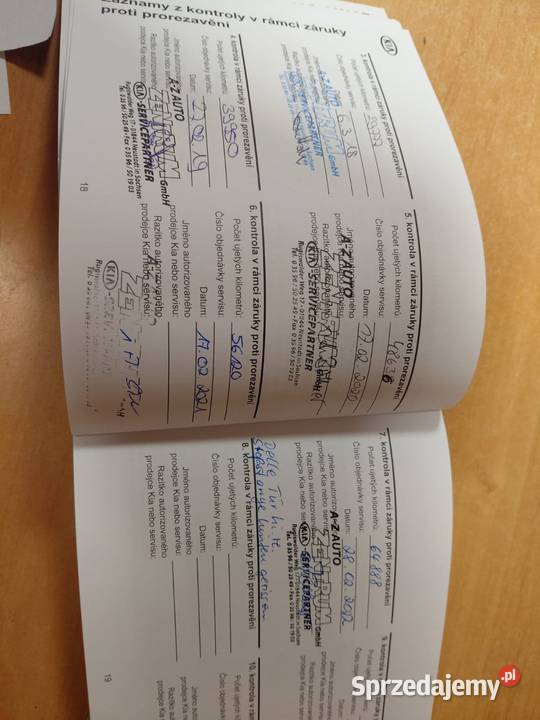 Záznamy z kontroly v rámci záruky
proti prorezavění
KIA
3. kontrola v rámci záruky proti prorezavění
Počet ujetých kilometrů:
Číslo objednávky servisu:
6.3.18
4. kontrola v rámci záruky proti prorezavění
Počet ujetých kilometrů: 39950
Číslo objednávky servisu:
Datum: 27.02.19
Jméno autorizovaného
prodejce Kia nebo servisu:
Razítko autorizovaného
prodejce Kia nebo servisu:
A-Z AUTO
ZENTRUM GmbH
KIA-SERVICEPARTNER
Rugiswalder Weg 17 • 01844 Neustadt in Sachsen
Tel. 0 35 96 / 50 25 49 • Fax 0 35 96 / 50 19 03
18
5. kontrola v rámci záruky proti prorezavění
Počet ujetých kilometrů: 48836
Číslo objednávky servisu:
Datum: 17.02.2020
A-Z AUTO
ZENTRUM GmbH
KIA-SERVICEPARTNER
Rugiswalder Weg 17 • 01844 Neustadt in Sachsen
Tel. 0 35 96 / 50 25 49 • Fax 0 35 96 / 50 19 03
6. kontrola v rámci záruky proti prorezavění
Počet ujetých kilometrů: 56120
Číslo objednávky servisu:
Datum: 17.02.2021
Jméno autorizovaného
prodejce Kia nebo servisu:
Razítko autorizovaného
prodejce Kia nebo servisu:
7. kontrola v rámci záruky proti prorezavění
Počet ujetých kilometrů: 64888
Číslo objednávky servisu:
Datum: 28.02.2022
Jméno autorizovaného
prodejce Kia nebo servisu:
Razítko autorizovaného
prodejce Kia nebo servisu:
A-Z AUTO
ZENTRUM GmbH
KIA-SERVICEPARTNER
Rugiswalder Weg 17 • 01844 Neustadt in Sachsen
Tel. 0 35 96 / 50 25 49 • Fax 0 35 96 / 50 19 03
Delle Tür hi. re.
Stoßstange hinten gerissen
8. kontrola v rámci záruky proti prorezavění
Počet ujetých kilometrů:
Číslo objednávky servisu:
Datum:
Jméno autorizovaného
prodejce Kia nebo servisu:
Razítko autorizovaného
prodejce Kia nebo servisu:
9. kontrola v rámci záruky
Číslo objednávky
Datum:
Jméno autorizovaného
prodejce Kia nebo
Razítko autorizovaného
prodejce Kia nebo
10. kontrola v
19
Sprzedajemy.pl